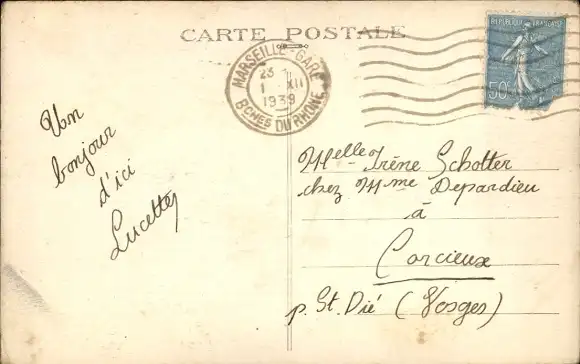 CARTE POSTALE
MARSEILLE-GARE
23 -
1 - XII
1939
BCHES DU RHONE
REPUBLIQUE FRANÇAISE
50
Un
bonjour
d'ici
Lucette
Melle Irène Scholter
chez Mme Depardieu
à
Corcieux
p. St. Dié (Vosges)